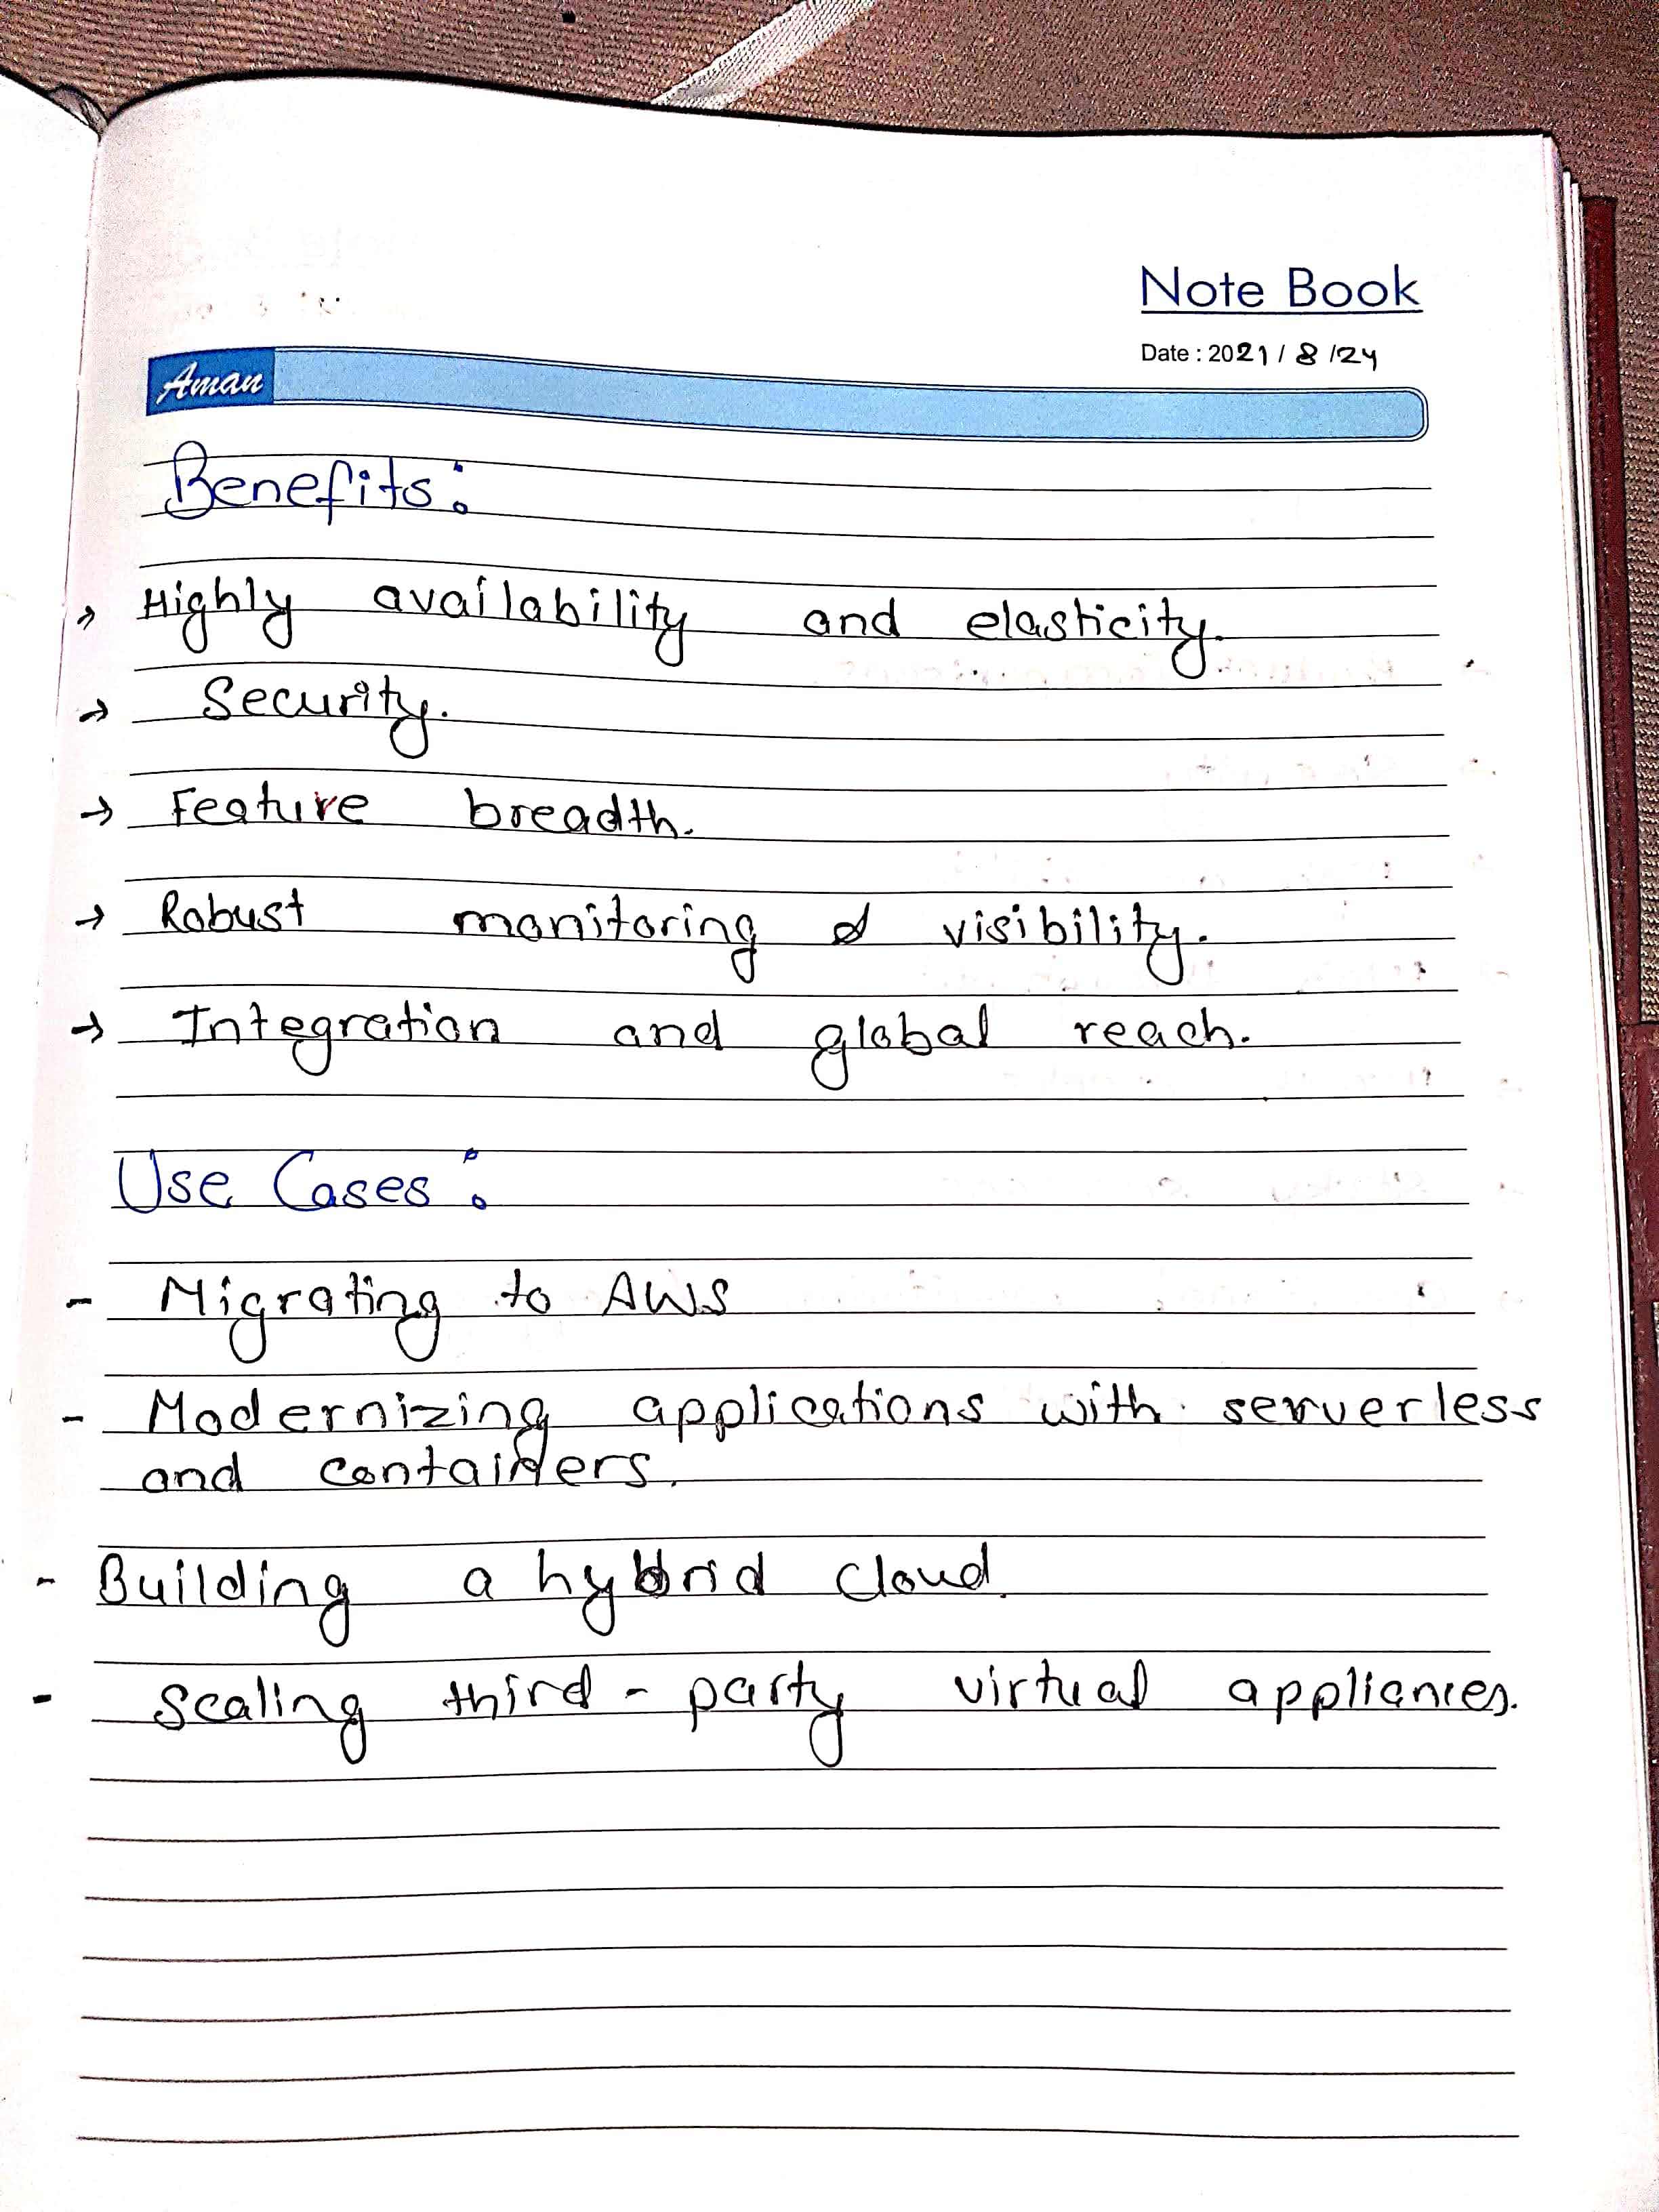 Note Book
Date : 2021 / 8 /24
Aman
Benefits:
→ Highly availability and elasticity.
→ Security.
→ Feature breadth.
→ Robust monitoring & visibility.
→ Integration and global reach.
Use Cases:
- Migrating to AWS
- Modernizing applications with serverless
and containers.
- Building a hybrid cloud.
- Scaling third-party virtual appliances.